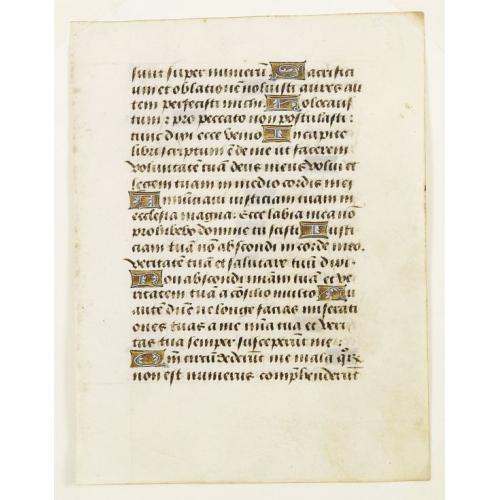 sunt super numerū Sacrifici
um et oblationē noluisti aures au
tem perfecisti michi. Holocaus
tum : pro peccato non postulasti :
tunc dixi ecce venio In capite
libri scriptum ē de me ut facerem
voluntatē tuā deus meus volui et
legem tuam in medio cordis mei
Annūciaui iusticiam tuam in
ecclesia magna : Ecce labia mea nō
prohibebo domine tu scisti Iusti
ciam tuā nō abscondi in corde meo.
veritatē tuā et salutare tuū dixi.
Non abscondi miam tuā et ve
ritatem tuā a cōsilio multo Tu
autē dn̄e ne longe facias miserati
ones tuas a me mīa tua et veri
tas tua semper susceperūt me :
Qm̄ circūdederūt me mala qr̄
non est numerus comp̄henderūt